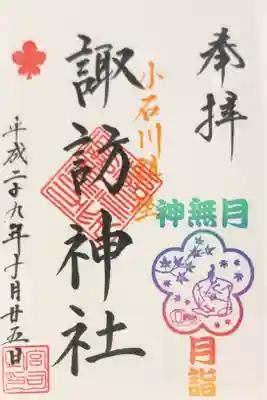 奉拝
神無月
月詣
小石川鎮座
諏訪神社
平成二十九年十月廿五日